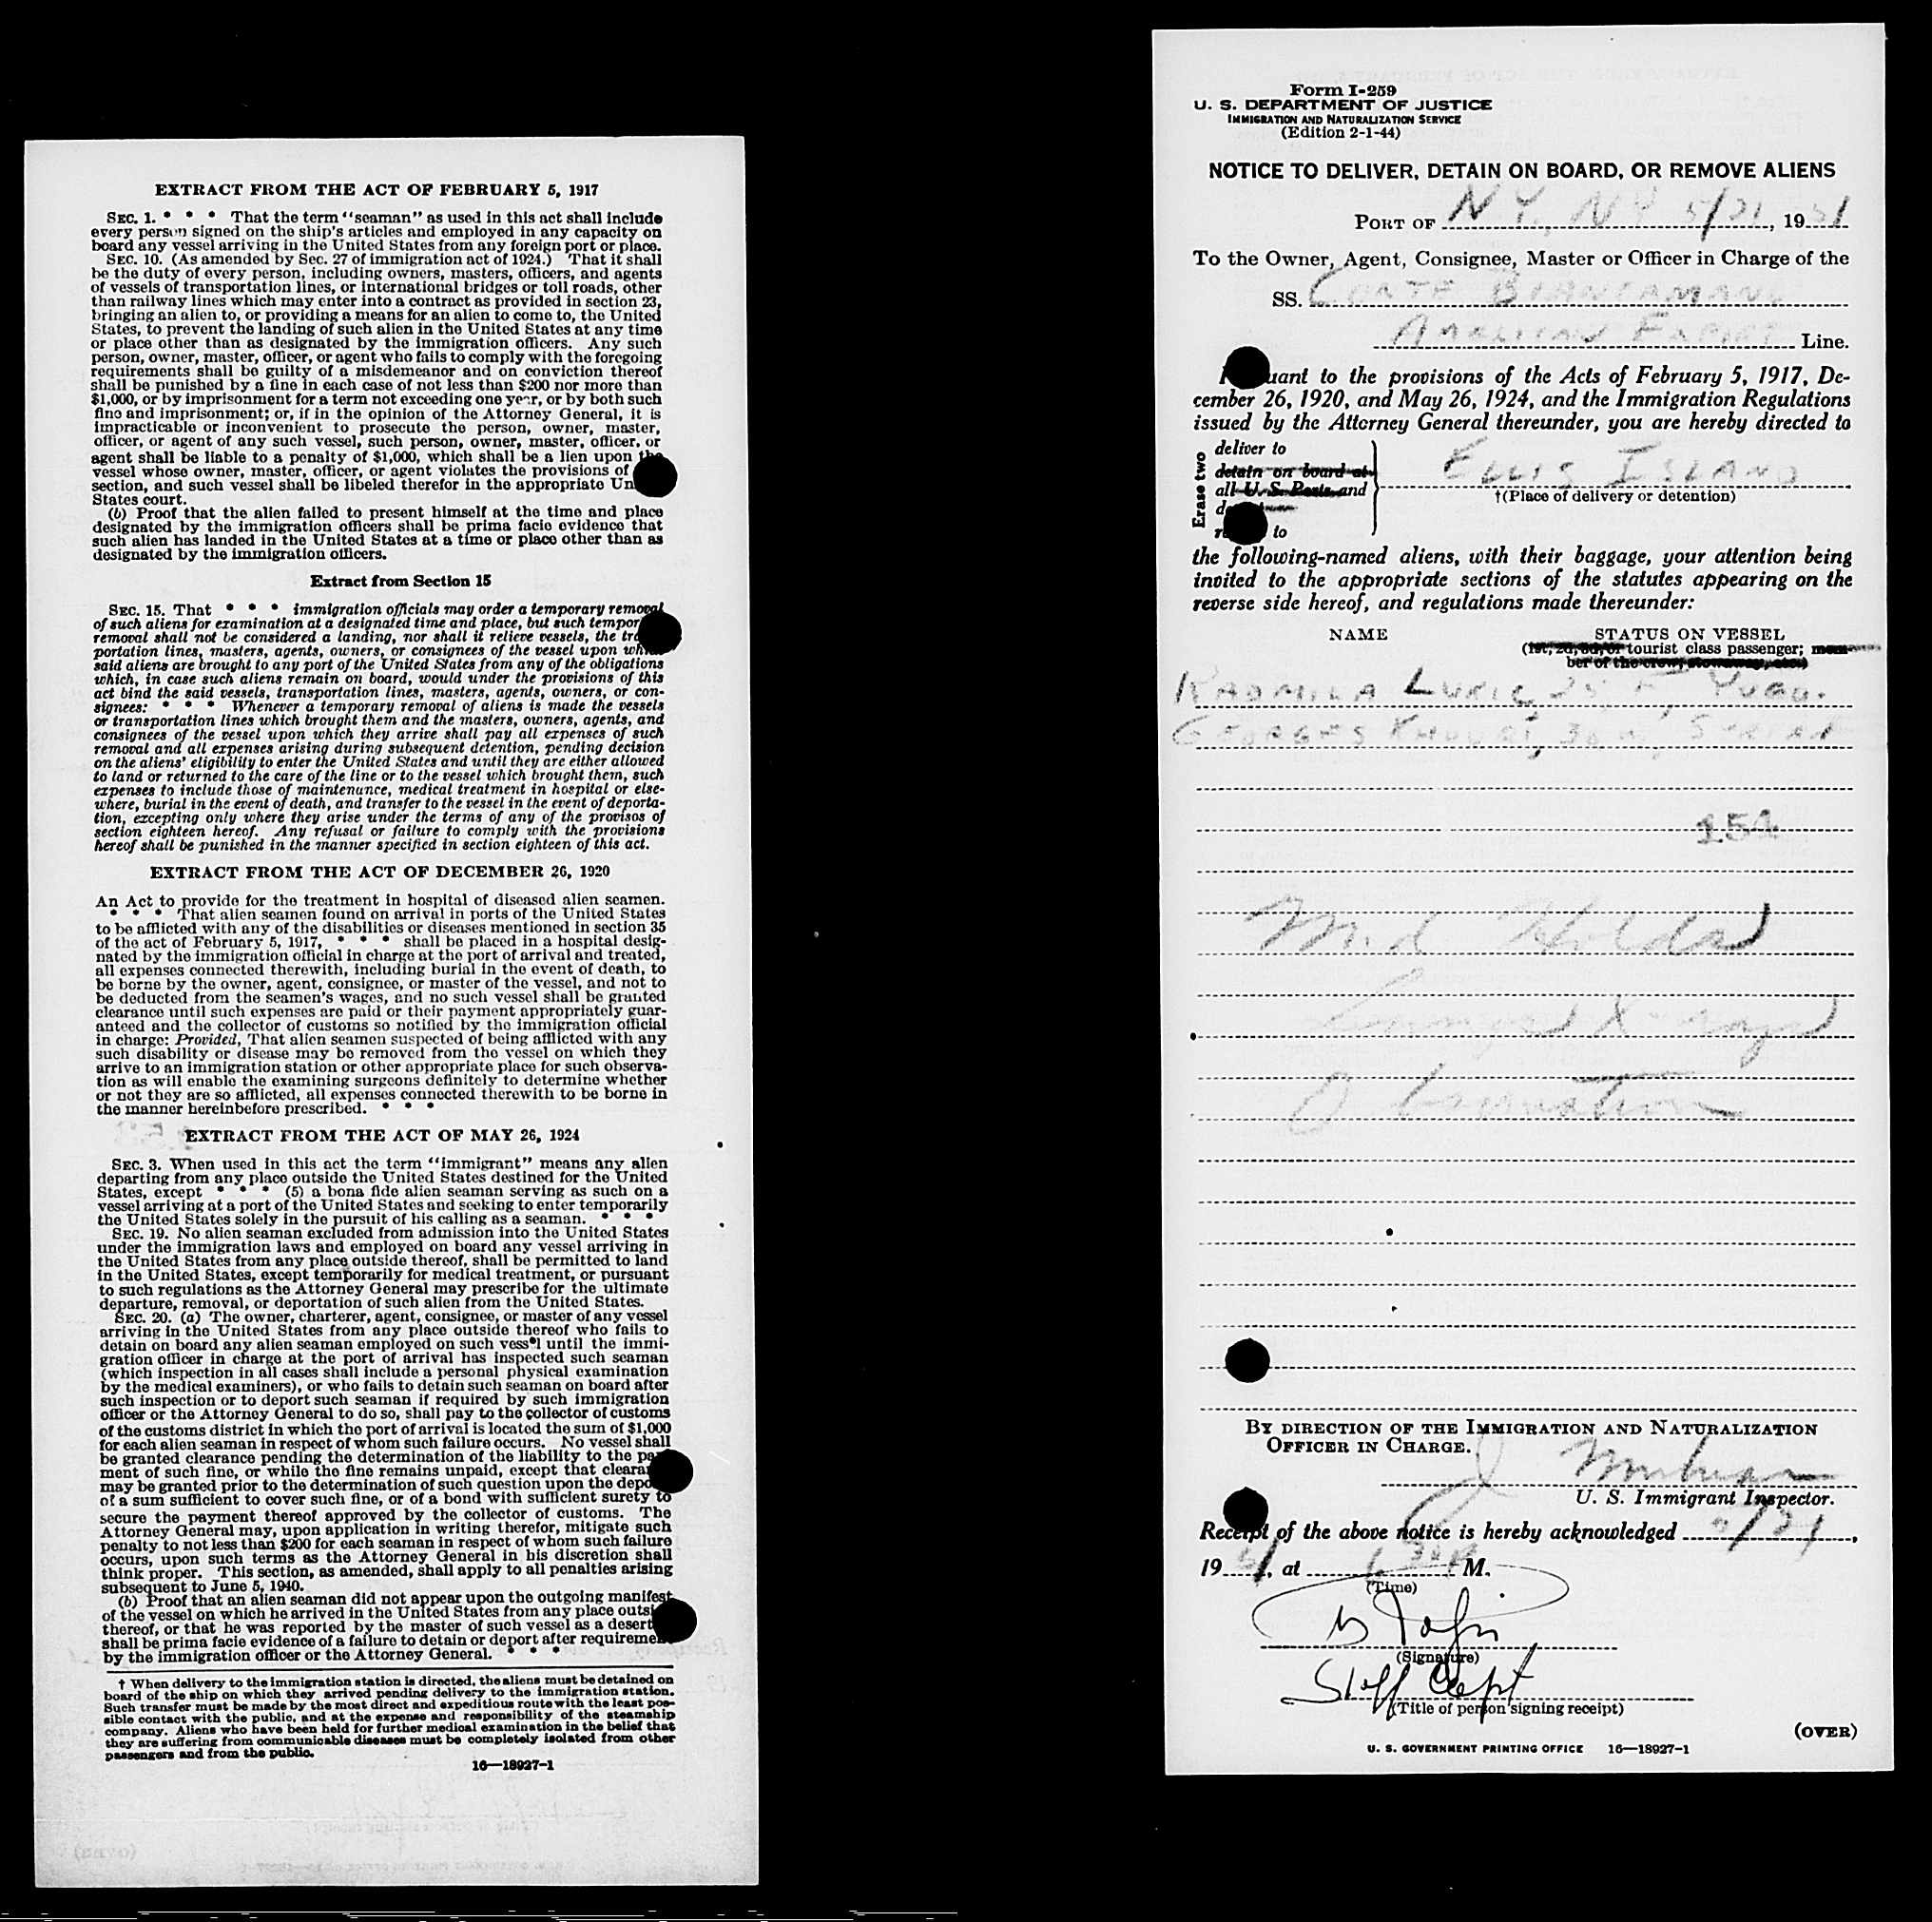 EXTRACT FROM THE ACT OF FEBRUARY 5, 1917
SEC. 1. * * * That the term "seaman" as used in this act shall include
every person signed on the ship's articles and employed in any capacity on
board any vessel arriving in the United States from any foreign port or place.
SEC. 10. (As amended by Sec. 27 of immigration act of 1924.) That it shall
be the duty of every person, including owners, masters, officers, and agents
of vessels of transportation lines, or international bridges or toll roads, other
than railway lines which may enter into a contract as provided in section 23,
bringing an alien to, or providing a means for an alien to come to, the United
States, to prevent the landing of such alien in the United States at any time
or place other than as designated by the immigration officers. Any such
person, owner, master, officer, or agent who fails to comply with the foregoing
requirements shall be guilty of a misdemeanor and on conviction thereof
shall be punished by a fine in each case of not less than $200 nor more than
$1,000, or by imprisonment for a term not exceeding one year, or by both such
fine and imprisonment; or, if in the opinion of the Attorney General, it is
impracticable or inconvenient to prosecute the person, owner, master,
officer, or agent of any such vessel, such person, owner, master, officer, or
agent shall be liable to a penalty of $1,000, which shall be a lien upon the
vessel whose owner, master, officer, or agent violates the provisions of
section, and such vessel shall be libeled therefor in the appropriate Un
States court.
(b) Proof that the alien failed to present himself at the time and place
designated by the immigration officers shall be prima facie evidence that
such alien has landed in the United States at a time or place other than as
designated by the immigration officers.
Extract from Section 15
SEC. 15. That * * * immigration officials may order a temporary removal
of such aliens for examination at a designated time and place, but such tempor
removal shall not be considered a landing, nor shall it relieve vessels, the tra
portation lines, masters, agents, owners, or consignees of the vessel upon wh
said aliens are brought to any port of the United States from any of the obligations
which, in case such aliens remain on board, would under the provisions of this
act bind the said vessels, transportation lines, masters, agents, owners, or con-
signees: * * * Whenever a temporary removal of aliens is made the vessels
or transportation lines which brought them and the masters, owners, agents, and
consignees of the vessel upon which they arrive shall pay all expenses of such
removal and all expenses arising during subsequent detention, pending decision
on the aliens' eligibility to enter the United States and until they are either allowed
to land or returned to the care of the line or to the vessel which brought them, such
expenses to include those of maintenance, medical treatment in hospital or else-
where, burial in the event of death, and transfer to the vessel in the event of deporta-
tion, excepting only where they arise under the terms of any of the provisos of
section eighteen hereof. Any refusal or failure to comply with the provisions
hereof shall be punished in the manner specified in section eighteen of this act.
EXTRACT FROM THE ACT OF DECEMBER 26, 1920
An Act to provide for the treatment in hospital of diseased alien seamen.
* * * That alien seamen found on arrival in ports of the United States
to be afflicted with any of the disabilities or diseases mentioned in section 35
of the act of February 5, 1917, * * * shall be placed in a hospital desig-
nated by the immigration official in charge at the port of arrival and treated,
all expenses connected therewith, including burial in the event of death, to
be borne by the owner, agent, consignee, or master of the vessel, and not to
be deducted from the seamen's wages, and no such vessel shall be granted
clearance until such expenses are paid or their payment appropriately guar-
anteed and the collector of customs so notified by the immigration official
in charge: Provided, That alien seamen suspected of being afflicted with any
such disability or disease may be removed from the vessel on which they
arrive to an immigration station or other appropriate place for such observa-
tion as will enable the examining surgeons definitely to determine whether
or not they are so afflicted, all expenses connected therewith to be borne in
the manner hereinbefore prescribed. * * *
EXTRACT FROM THE ACT OF MAY 26, 1924
SEC. 3. When used in this act the term "immigrant" means any alien
departing from any place outside the United States destined for the United
States, except * * * (5) a bona fide alien seaman serving as such on a
vessel arriving at a port of the United States and seeking to enter temporarily
the United States solely in the pursuit of his calling as a seaman. * * *
SEC. 19. No alien seaman excluded from admission into the United States
under the immigration laws and employed on board any vessel arriving in
the United States from any place outside thereof, shall be permitted to land
in the United States, except temporarily for medical treatment, or pursuant
to such regulations as the Attorney General may prescribe for the ultimate
departure, removal, or deportation of such alien from the United States.
SEC. 20. (a) The owner, charterer, agent, consignee, or master of any vessel
arriving in the United States from any place outside thereof who fails to
detain on board any alien seaman employed on such vessel until the immi-
gration officer in charge at the port of arrival has inspected such seaman
(which inspection in all cases shall include a personal physical examination
by the medical examiners), or who fails to detain such seaman on board after
such inspection or to deport such seaman if required by such immigration
officer or the Attorney General to do so, shall pay to the collector of customs
of the customs district in which the port of arrival is located the sum of $1,000
for each alien seaman in respect of whom such failure occurs. No vessel shall
be granted clearance pending the determination of the liability to the pa
ment of such fine, or while the fine remains unpaid, except that cleara
may be granted prior to the determination of such question upon the depo
of a sum sufficient to cover such fine, or of a bond with sufficient surety to
secure the payment thereof approved by the collector of customs. The
Attorney General may, upon application in writing therefor, mitigate such
penalty to not less than $200 for each seaman in respect of whom such failure
occurs, upon such terms as the Attorney General in his discretion shall
think proper. This section, as amended, shall apply to all penalties arising
subsequent to June 5, 1940.
(b) Proof that an alien seaman did not appear upon the outgoing manifest
of the vessel on which he arrived in the United States from any place outsi
thereof, or that he was reported by the master of such vessel as a desert
shall be prima facie evidence of a failure to detain or deport after requiremen
by the immigration officer or the Attorney General. * * *
† When delivery to the immigration station is directed, the aliens must be detained on
board of the ship on which they arrived pending delivery to the immigration station.
Such transfer must be made by the most direct and expeditious route with the least pos-
sible contact with the public, and at the expense and responsibility of the steamship
company. Aliens who have been held for further medical examination in the belief that
they are suffering from communicable diseases must be completely isolated from other
passengers and from the public.
16—18927-1
Form I-259
U. S. DEPARTMENT OF JUSTICE
IMMIGRATION AND NATURALIZATION SERVICE
(Edition 2-1-44)
NOTICE TO DELIVER, DETAIN ON BOARD, OR REMOVE ALIENS
PORT OF N.Y. NY 5/21, 1951
To the Owner, Agent, Consignee, Master or Officer in Charge of the
SS. CONTE BIANCAMANO
AMERICAN EXPORT Line.
uant to the provisions of the Acts of February 5, 1917, De-
cember 26, 1920, and May 26, 1924, and the Immigration Regulations
issued by the Attorney General thereunder, you are hereby directed to
Erase two
deliver to
detain on board at
all U. S. Ports and
to
ELLIS ISLAND
†(Place of delivery or detention)
the following-named aliens, with their baggage, your attention being
invited to the appropriate sections of the statutes appearing on the
reverse side hereof, and regulations made thereunder:
NAME STATUS ON VESSEL
(1st, 2d, 3d, or tourist class passenger; mem-
ber of the crew, stowaway, etc.)
RADMILA LUKIC, 25 F, YUGO.
GEORGES KHOURI, 30 M, SYRIAN
154
Med Holds
X-rays
Observation
BY DIRECTION OF THE IMMIGRATION AND NATURALIZATION
OFFICER IN CHARGE.
U. S. Immigrant Inspector.
Receipt of the above notice is hereby acknowledged 5/21,
1951, at M.
(Time)
(Signature)
Staff Capt
(Title of person signing receipt)
(OVER)
U. S. GOVERNMENT PRINTING OFFICE 16—18927-1